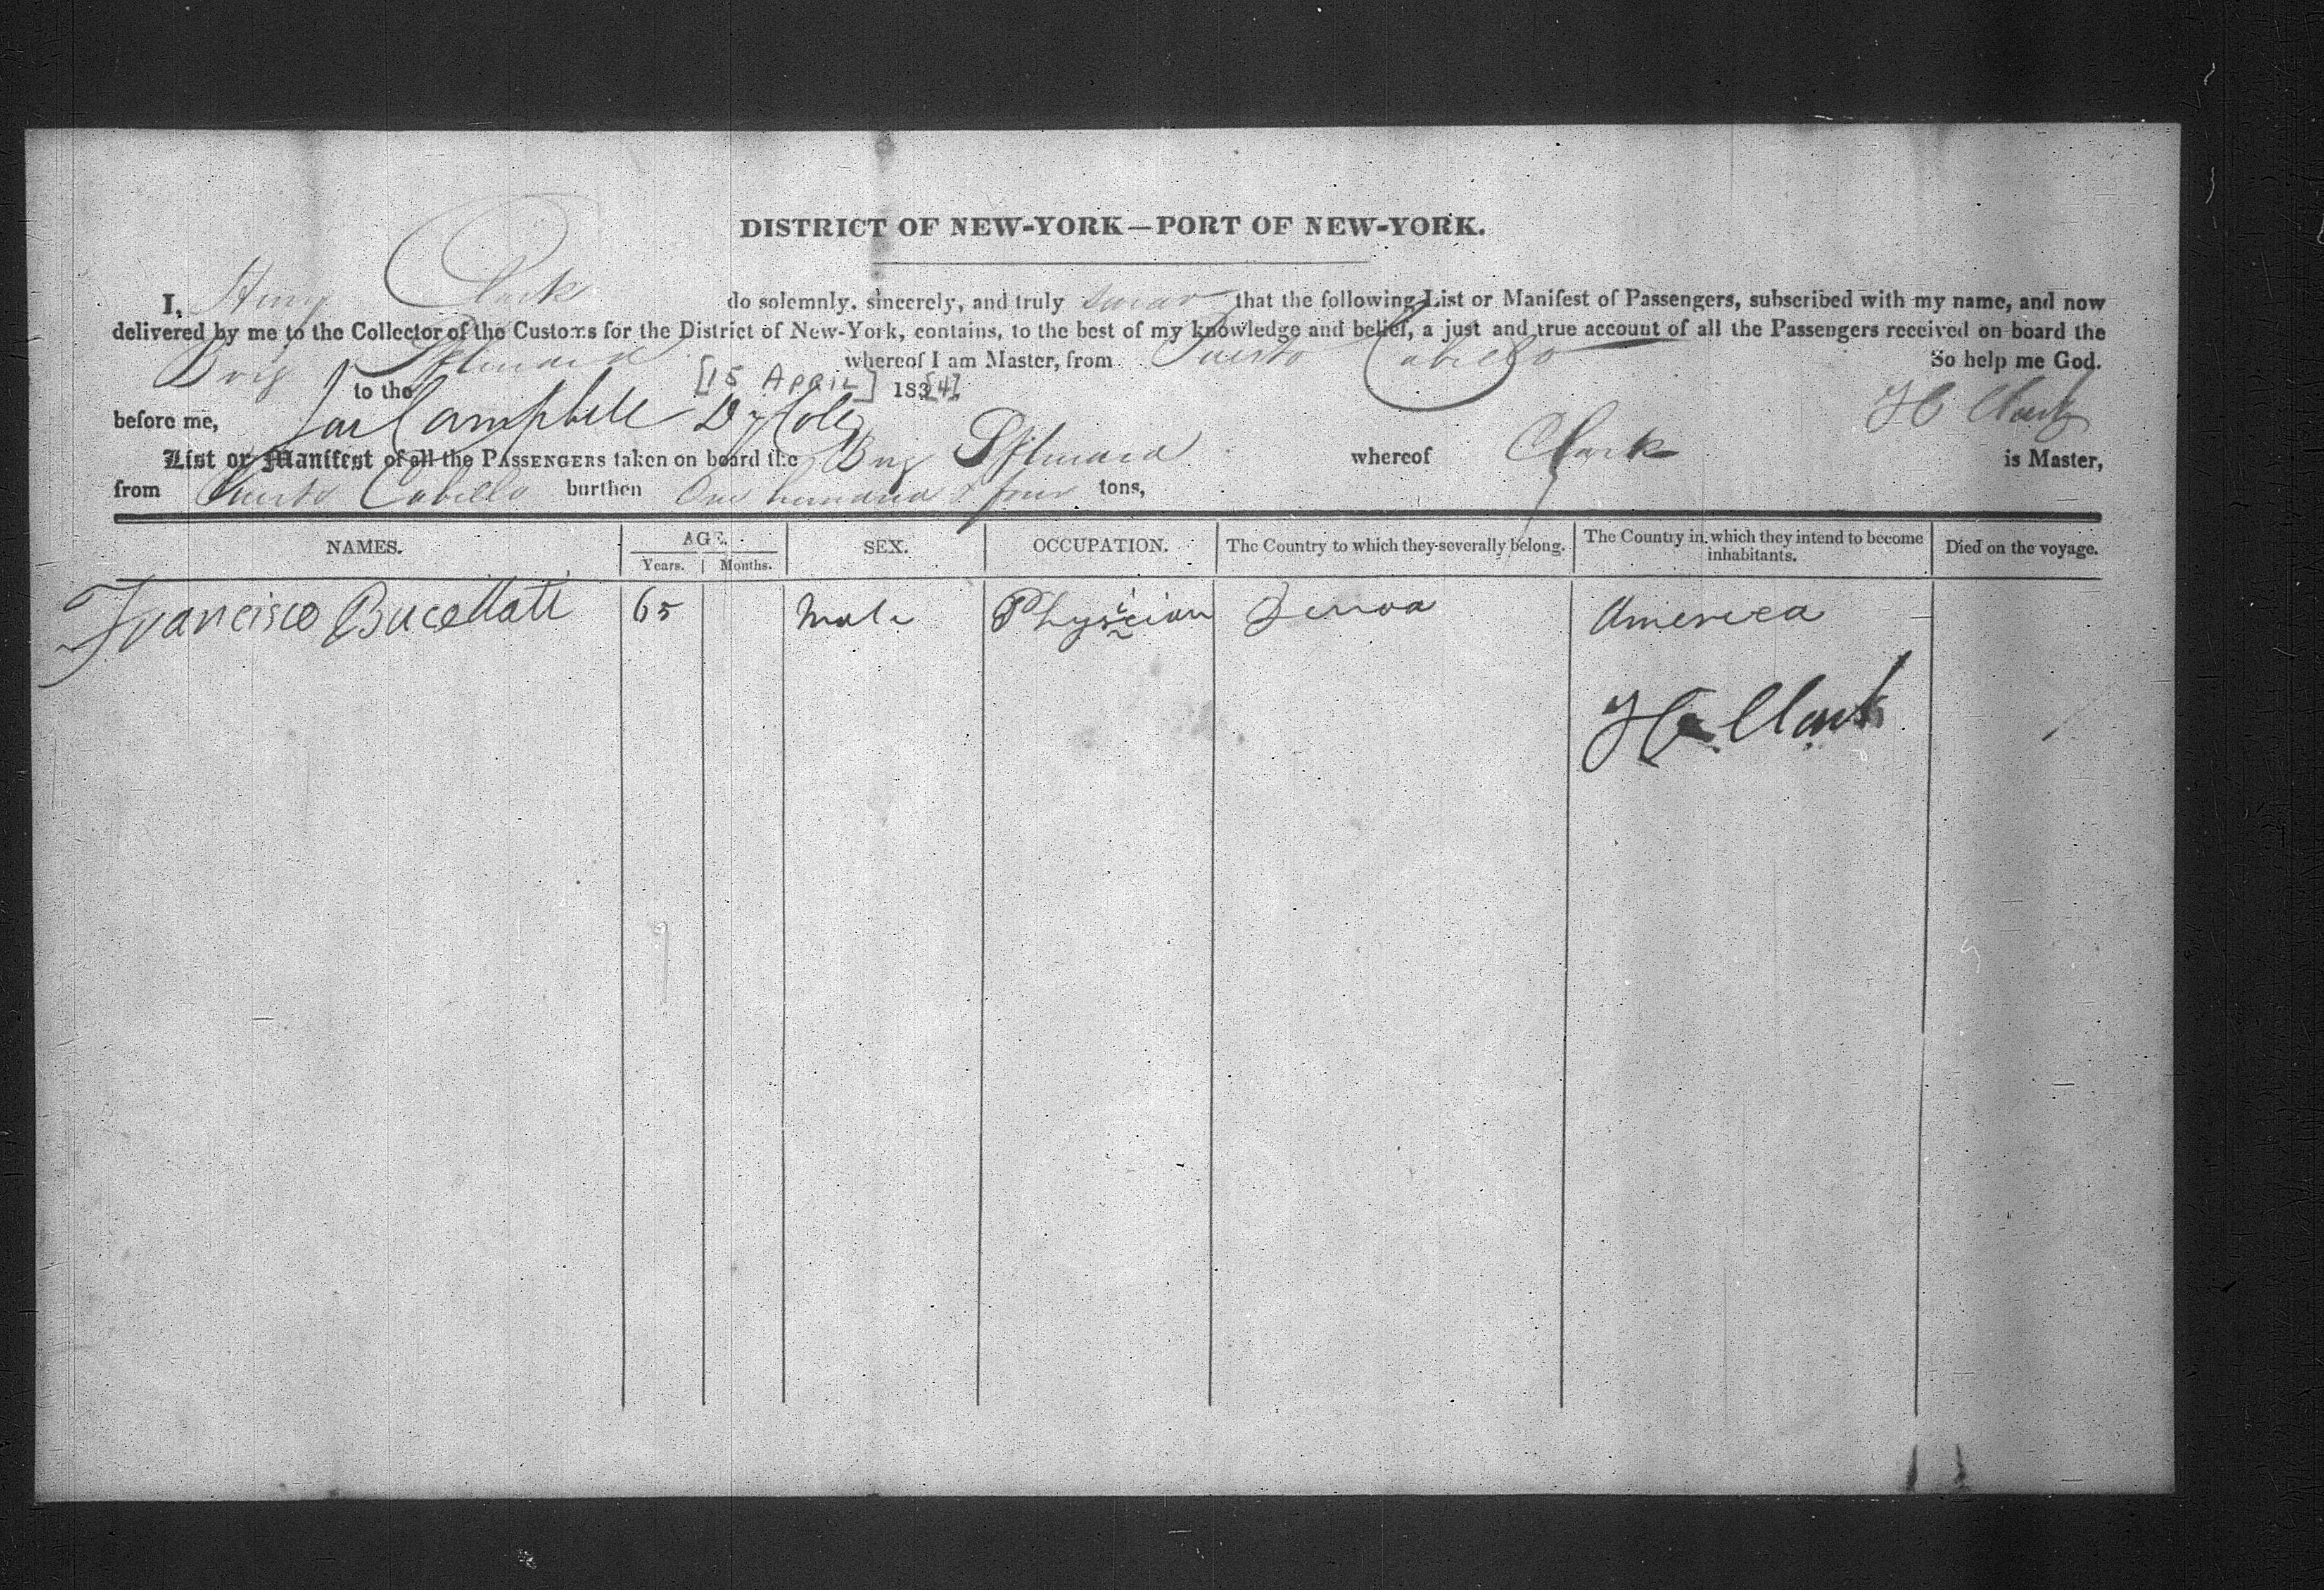 DISTRICT OF NEW-YORK—PORT OF NEW-YORK.
I, Henry Clark do solemnly, sincerely, and truly swear that the following List or Manifest of Passengers, subscribed with my name, and now
delivered by me to the Collector of the Customs for the District of New-York, contains, to the best of my knowledge and belief, a just and true account of all the Passengers received on board the
Brig whereof I am Master, from Puerto Cabello So help me God.
to the [15 April] 183[4]
H Clark
before me, Jas Campbell Dy Colr
List or Manifest of all the PASSENGERS taken on board the Brig whereof Clark is Master,
from Puerto Cabello burthen One hundred & four tons,
NAMES. AGE. SEX. OCCUPATION. The Country to which they severally belong. The Country in which they intend to become inhabitants. Died on the voyage.
Years. Months.
Francisco Bucellati 65 Male Physician Genoa America
H Clark